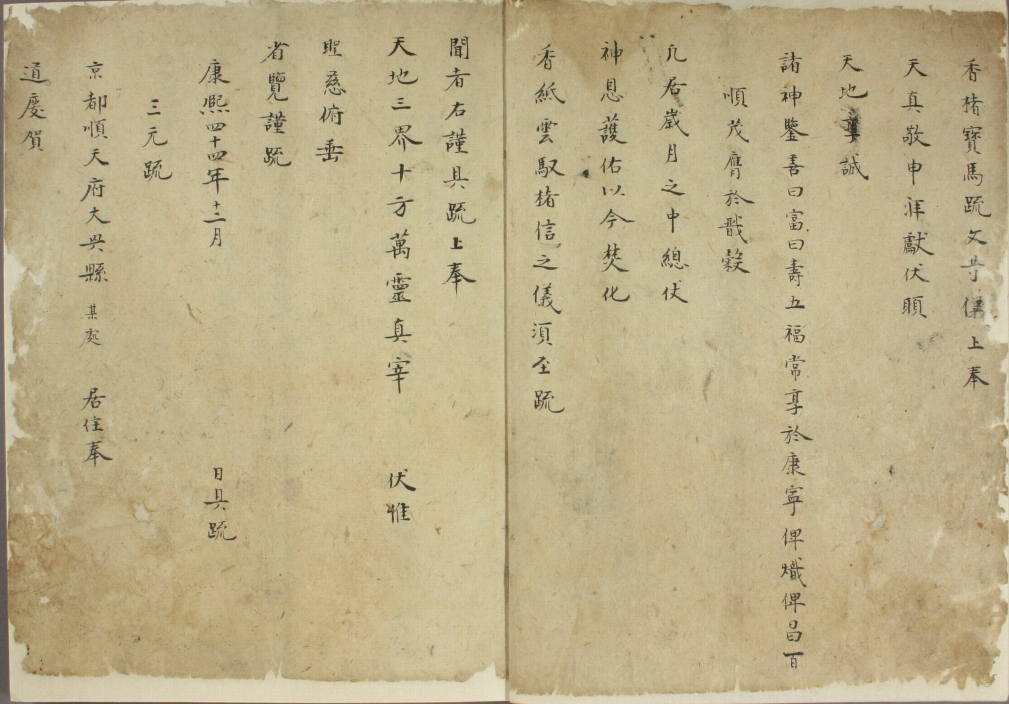 香楮寶馬疏文等儀上奉
天真敬申拜獻伏願
天地尊誠
諸神鑒善曰富曰壽五福常享於康寧俾熾俾昌百
順茂膺於戩穀
凡居歲月之中總伏
神恩護佑以今焚化
香紙雲馭楮信之儀須至疏
聞者右謹具疏上奉
天地三界十方萬靈真宰 伏惟
聖慈俯垂
省覽謹疏
康熙四十四年十二月 日具疏
三元疏
京都順天府大興縣某處 居住奉
道慶賀